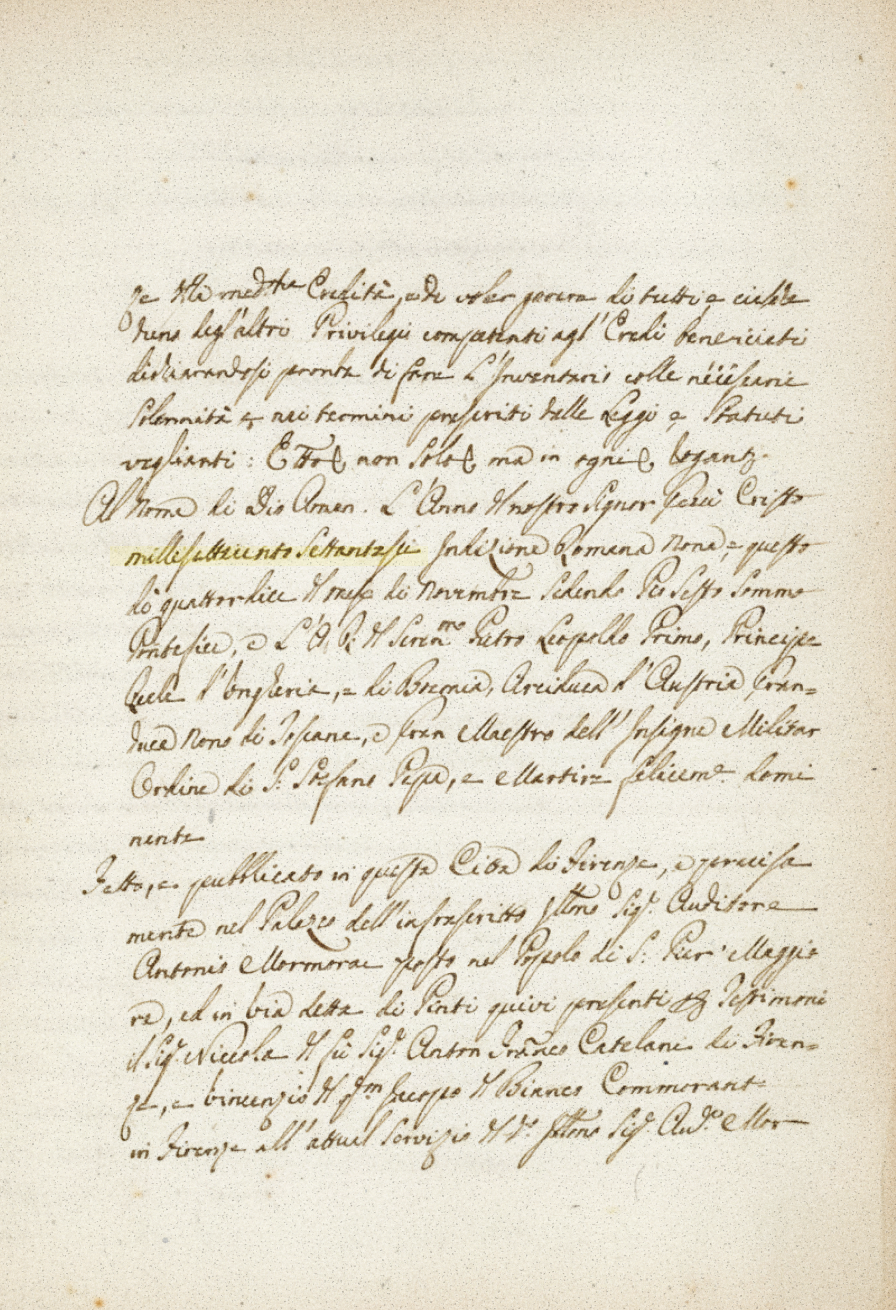 ze della med.ma Eredità, e di voler godere di tutti, e ciasche
duno degl'altri Privilegi competenti agl'Eredi beneficiati
dichiarandosi pronta di fare L'Inventario colle necessarie
Solennità e nei termini prescritti dalle Leggi e Statuti
veglianti: E non solo, ma in ogni
Al Nome di Dio Amen. L'Anno del nostro Signor Gesù Cristo
millesettecento Settantasei Indizione Romana Nona, e questo
dì quattordici del mese di Novembre Sedendo Pio Sesto Sommo
Pontefice, e L'A. R. del Seren.mo Pietro Leopoldo Primo, Principe
Reale d'Ungheria, e di Boemia, Arciduca d'Austria Gran=
duca Nono di Toscana, e Gran Maestro dell'Insigne Militar
Ordine di S. Stefano Papa, e Martire felicem.e domi
nante
Fatto, e pubblicato in questa Città di Firenze, e precisa
mente nel Palazzo dell'infrascritto Illmo Sig.r Auditore
Antonio Mormorai posto nel Popolo di S. Pier Maggio
re, ed in Via detta di Pinti quivi presenti Testimoni
il Sig.r Niccola del fù Sig.r Anton Franco Catelani di Firen=
ze, e Vincenzio del qm Jacopo del Bianco Commorante
in Firenze all'attual Servizio del d.o Illmo Sig.r Aud.e Mor